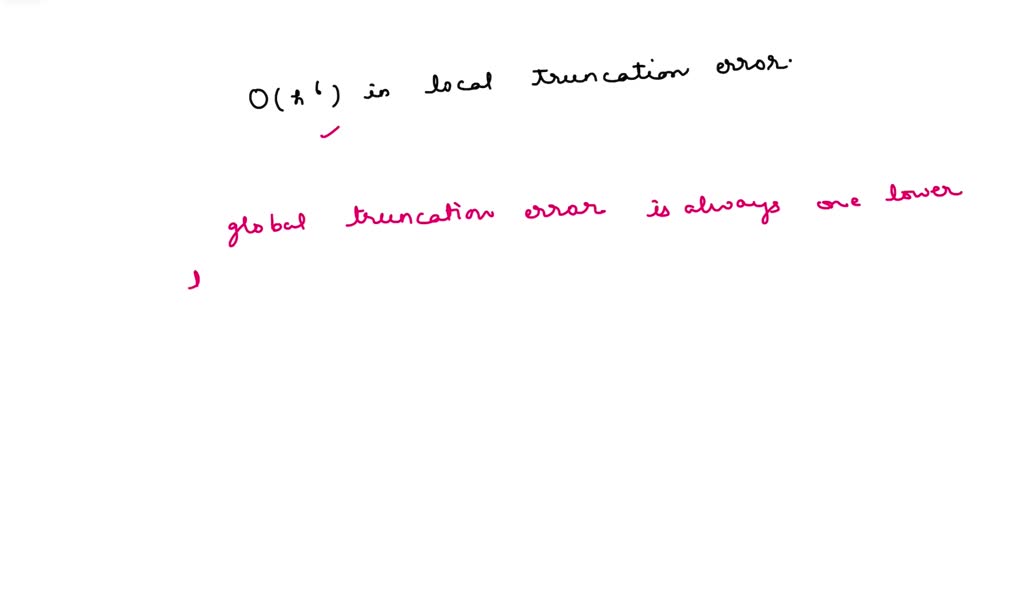 O(h⁶) is local truncation error.
global truncation error is always one lower